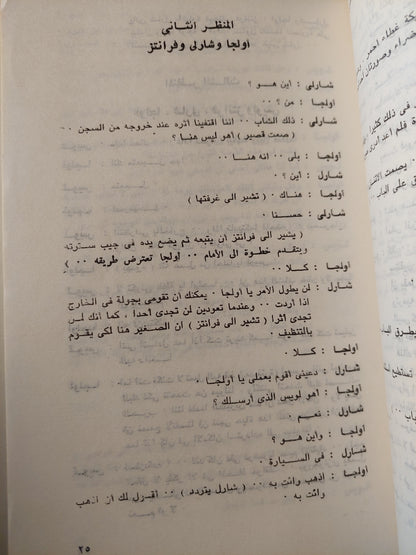 المنظر الثانى
أولجا وشارلى وفرانتز
شارلى : أين هو ؟
اولجا : من ؟ ٠٠
شارلى : ذلك الشاب ٠٠ اننا اقتفينا أثره عند خروجه من السجن ٠٠
( صمت قصير ) أهو ليس هنا ؟ ٠
اولجا : بلى ٠٠ انه هنا ٠٠
شارل : أين ؟ ٠
اولجا : هناك ٠ ( تشير الى غرفتها ) ٠
شارلى : حسنا ٠
( يشير الى فرانتز أن يتبعه ثم يضع يده فى جيب سترته
ويتقدم خطوة الى الأمام ٠٠ اولجا تعترض طريقه ٠٠ )
اولجا : كلا ٠٠
شارل : لن يطول الأمر يا أولجا ٠ يمكنك أن تقومى بجولة فى الخارج
اذا أردت ٠٠ وعندما تعودين لن تجدى أحدا ٠ كما أنك لن
تجدى أثرا ( تشير الى فرانتز ) ان الصغير هنا لكى يقوم
بالتنظيف ٠
اولجا : كلا ٠
شارل : دعينى أقوم بعملى يا أولجا ٠
اولجا : أهو لويس الذى أرسلك ؟
شارل : نعم ٠
اولجا : وأين هو ؟
شارل : فى السيارة ٠
اولجا : اذهب وائت به ٠٠ ( شارل يتردد ) ٠ أقول لك ان اذهب
وائت به ٠
٢٥